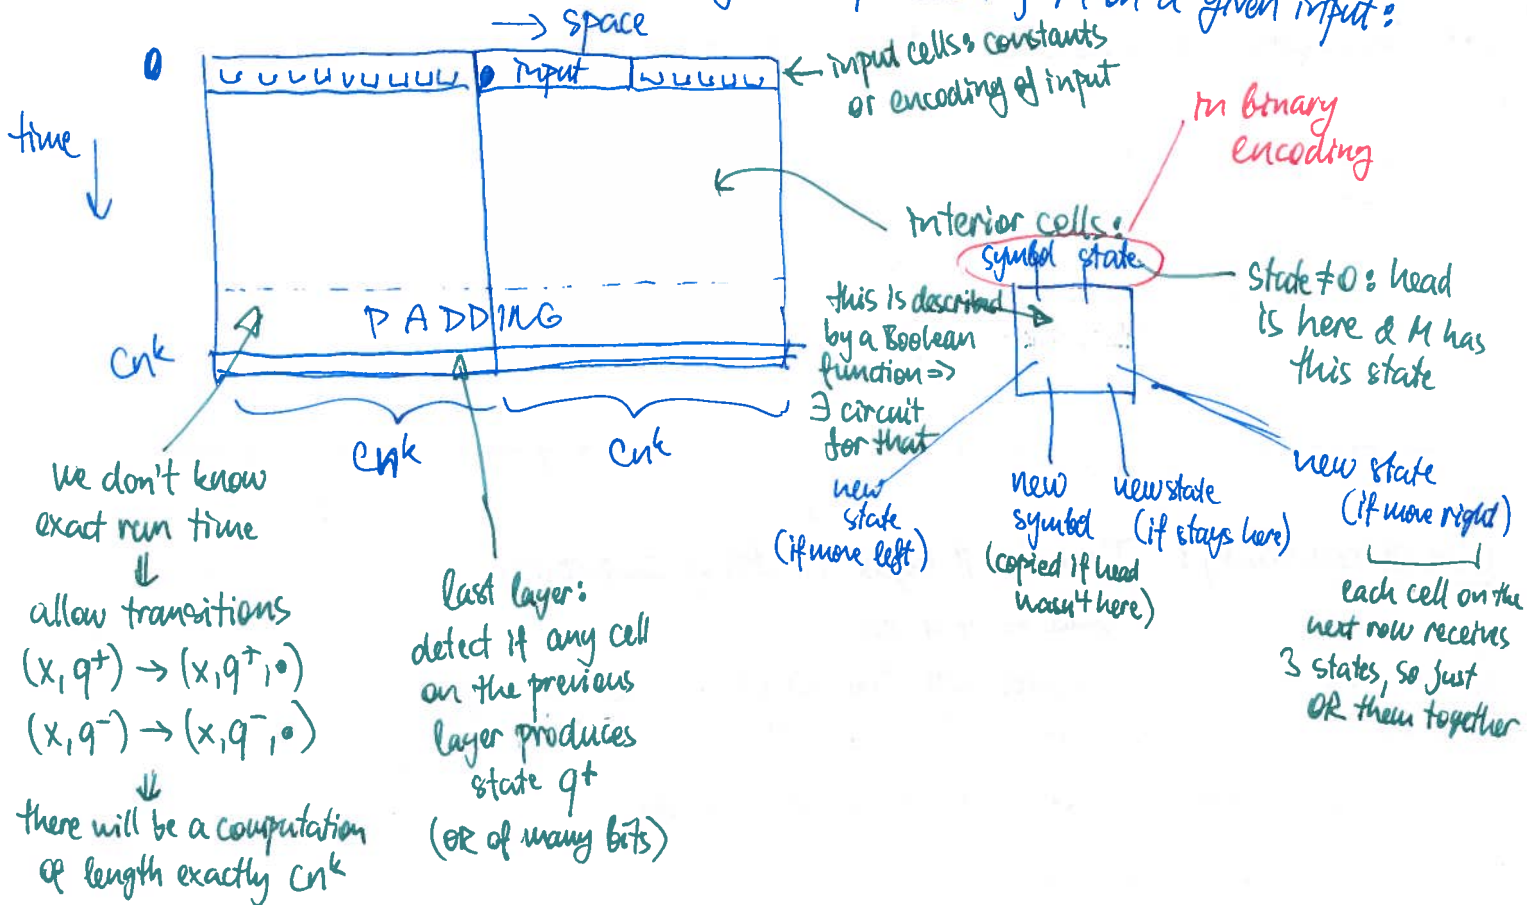 M on a given input:
→ space
0
␣␣␣␣␣␣␣␣␣ • input ␣␣␣␣␣
← input cells: constants
or encoding of input
time
in binary
encoding
interior cells:
symbol state
state≠0: head
is here & M has
this state
this is described
by a Boolean
function ⇒
∃ circuit
for that
PADDING
cn^k
cn^k
cn^k
new
state
(if move left)
new
symbol
(copied if head
wasn't here)
new state
(if stays here)
new state
(if move right)
each cell on the
next row receives
3 states, so just
OR them together
we don't know
exact run time
⇓
allow transitions
(x, q⁺) → (x, q⁺, •)
(x, q⁻) → (x, q⁻, •)
⇓
there will be a computation
of length exactly cn^k
last layer:
detect if any cell
on the previous
layer produces
state q⁺
(OR of many bits)